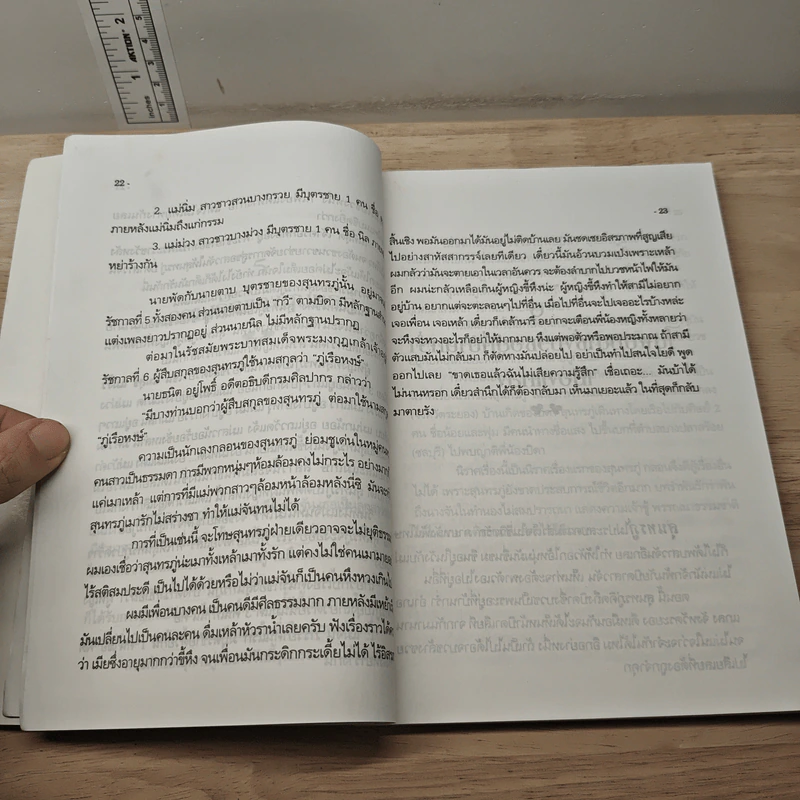 inches
AKTION
1
2
5
22 -
2. แม่นิ่ม สาวชาวสวนบางกรวย มีบุตรชาย 1 คน ชื่อ
ภายหลังแม่นิ่มถึงแก่กรรม
3. แม่ม่วง สาวชาวบางม่วง มีบุตรชาย 1 คน ชื่อ นิล
หย่าร้างกัน
นายพัดกับนายตาบ บุตรชายของสุนทรภู่นั้น
รัชกาลที่ 5 ทั้งสองคน ส่วนนายตาบเป็น "กวี" ตามบิดา มีหลักฐาน
แต่งเพลงยาวปรากฏอยู่ ส่วนนายนิล ไม่มีหลักฐานปรากฏ
ต่อมาในรัชสมัยพระบาทสมเด็จพระมงกุฎเกล้าเจ้า
รัชกาลที่ 6 ผู้สืบสกุลของสุนทรภู่ใช้นามสกุลว่า "ภู่เรือหงษ์"
นายธนิต อยู่โพธิ์ อดีตอธิบดีกรมศิลปากร กล่าวว่า
"มีบางท่านบอกว่าผู้สืบสกุลของสุนทรภู่ ต่อมาใช้นามสกุล
"ภู่เรือหงษ์"
ความเป็นนักเลงกลอนของสุนทรภู่ ย่อมชูเด่นในหมู่คน
คนสาวเป็นธรรมดา การมีพวกหนุ่มๆห้อมล้อมคงไม่กระไร อย่างมาก
แค่เมาเหล้า แต่การที่มีแม่พวกสาวๆล้อมหน้าล้อมหลังนี่ซิ มันจะ
สุนทรภู่เมารักไม่สร่างซา ทำให้แม่จันทนไม่ได้
การที่เป็นเช่นนี้ จะโทษสุนทรภู่ฝ่ายเดียวอาจจะไม่ยุติธรรม
ผมเองเชื่อว่าสุนทรภู่น่ะเมาทั้งเหล้าเมาทั้งรัก แต่คงไม่ใช่คนเมามาย
ไร้สติสมประดี เป็นไปได้ด้วยหรือไม่ว่าแม่จันก็เป็นคนหึงหวงเกินไป
ผมมีเพื่อนบางคน เป็นคนดีมีศีลธรรมมาก ภายหลังมีเหย้า
มันเปลี่ยนไปเป็นคนละคน ดื่มเหล้าหัวราน้ำเลยครับ ฟังเรื่องราวได้
ว่า เมียซึ่งอายุมากกว่าขี้หึง จนเพื่อนมันกระดิกกระเดี้ยไม่ได้ ไร้อิสร
- 23
สิ้นเชิง พอมันออกมาได้มันอยู่ไม่ติดบ้านเลย มันชดเชยอิสรภาพที่สูญเสีย
ไปอย่างสาหัสสากรรจ์เลยทีเดียว เดี๋ยวนี้มันอ้วนบวมเป่งเพราะเหล้า
ผมกลัวว่ามันจะตายเอาในเวลาอันควร จะต้องลำบากไปบวชหน้าไฟให้มัน
อีก ผมน่ะกลัวเหลือเกินผู้หญิงขี้หึงน่ะ ผู้หญิงขี้หึงทำให้สามีไม่อยาก
อยู่บ้าน อยากแต่จะตะลอนๆไปที่อื่น เมื่อไปที่อื่นจะไปเจออะไรบ้างหล่ะ
เจอเพื่อน เจอเหล้า เดี๋ยวก็เคล้านารี อยากจะเตือนพี่น้องหญิงทั้งหลายว่า
จะหึงจะหวงอะไรก็อย่าให้มากมาย หึงแต่พอตัวหรือพอประมาณ ถ้าสามี
ตัวแสบมันไม่กลับมา ก็ตัดหางมันปล่อยไป อย่าเป็นทำไปสนใจไยดี พูด
ออกไปเลย "ขาดเธอแล้วฉันไม่เสียความรู้สึก" เชื่อเถอะ... มันบ้าได้
ไม่นานหรอก เดี๋ยวสำนึกได้ก็ต้องกลับมา เห็นมาเยอะแล้ว ในที่สุดก็กลับ
มาตายรัง